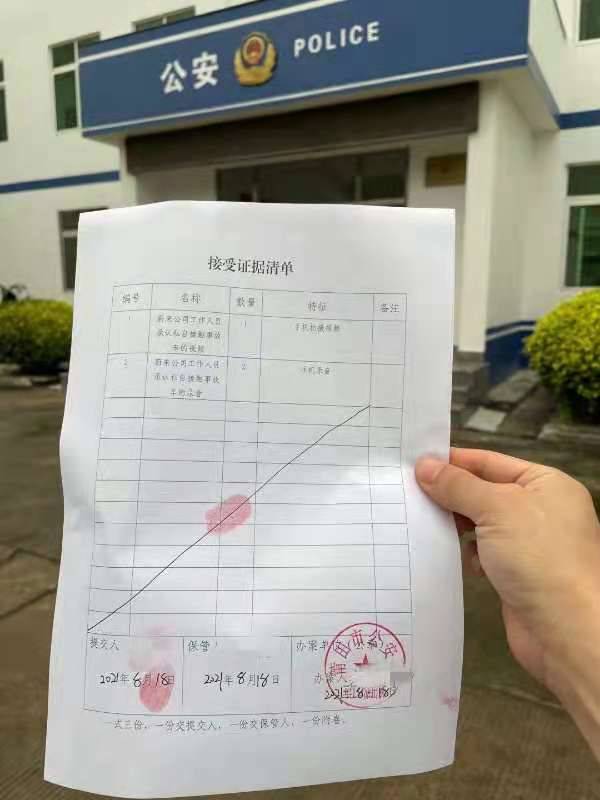 公安 POLICE
接受证据清单
编号 名称 数量 特征 备注
1 蔚来公司工作人员 1 手机拍摄视频
承认私自接触事故
车的视频
2 蔚来公司工作人员 2 手机录音
承认私自接触事故
车的录音
提交人 保管 办案单
办案人
2021年8月18日 2021年8月18日 2021年8月18日
田市公安
一式三份，一份交提交人，一份交保管人，一份附卷。